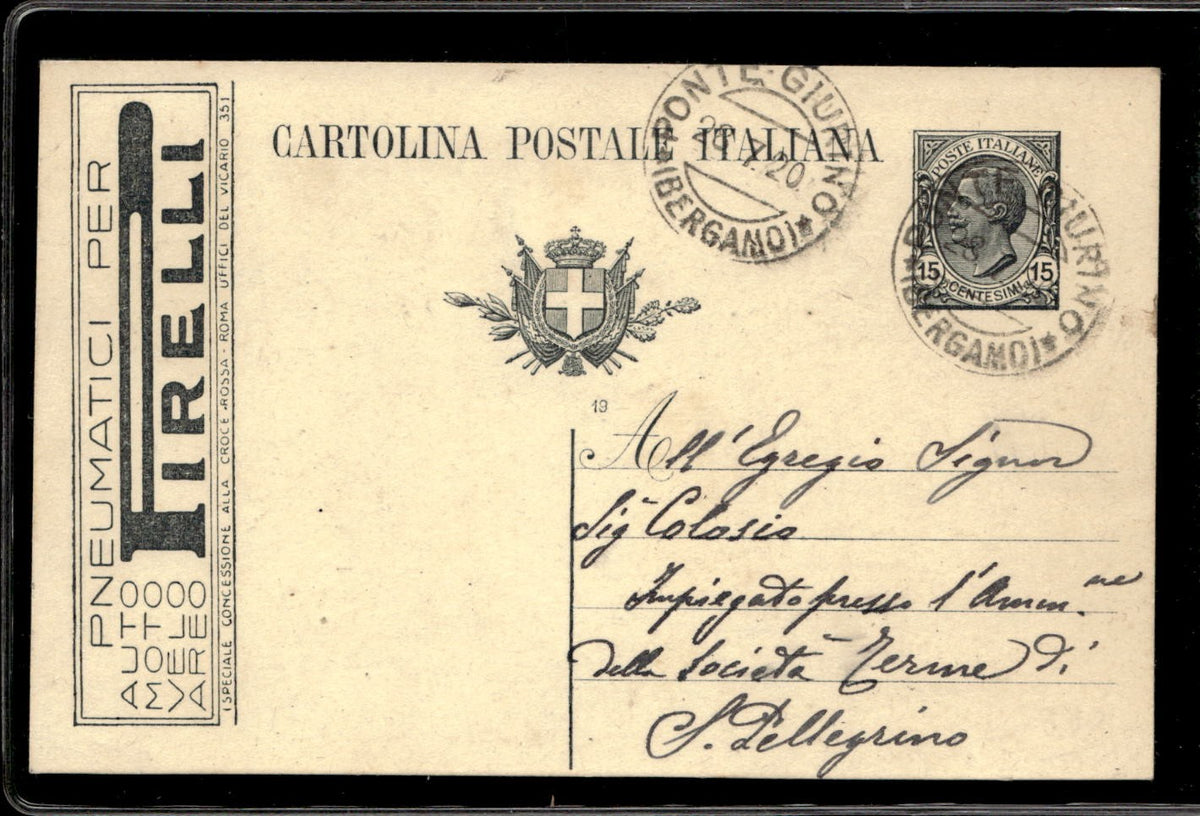 PNEUMATICI PER
PIRELLI
AUTO
MOTO
VELO
AREO
(SPECIALE CONCESSIONE ALLA CROCE ROSSA - ROMA UFFICI DEL VICARIO 35)
CARTOLINA POSTALE ITALIANA
PONTE GIURINO
(BERGAMO)
POSTE ITALIANE
15 CENTESIMI 15
GIURINO
(BERGAMO)
19
All' Egregio Signor
Sig Colosio
Impiegato presso l'Amm.ne
della Società Terme di
S. Pellegrino